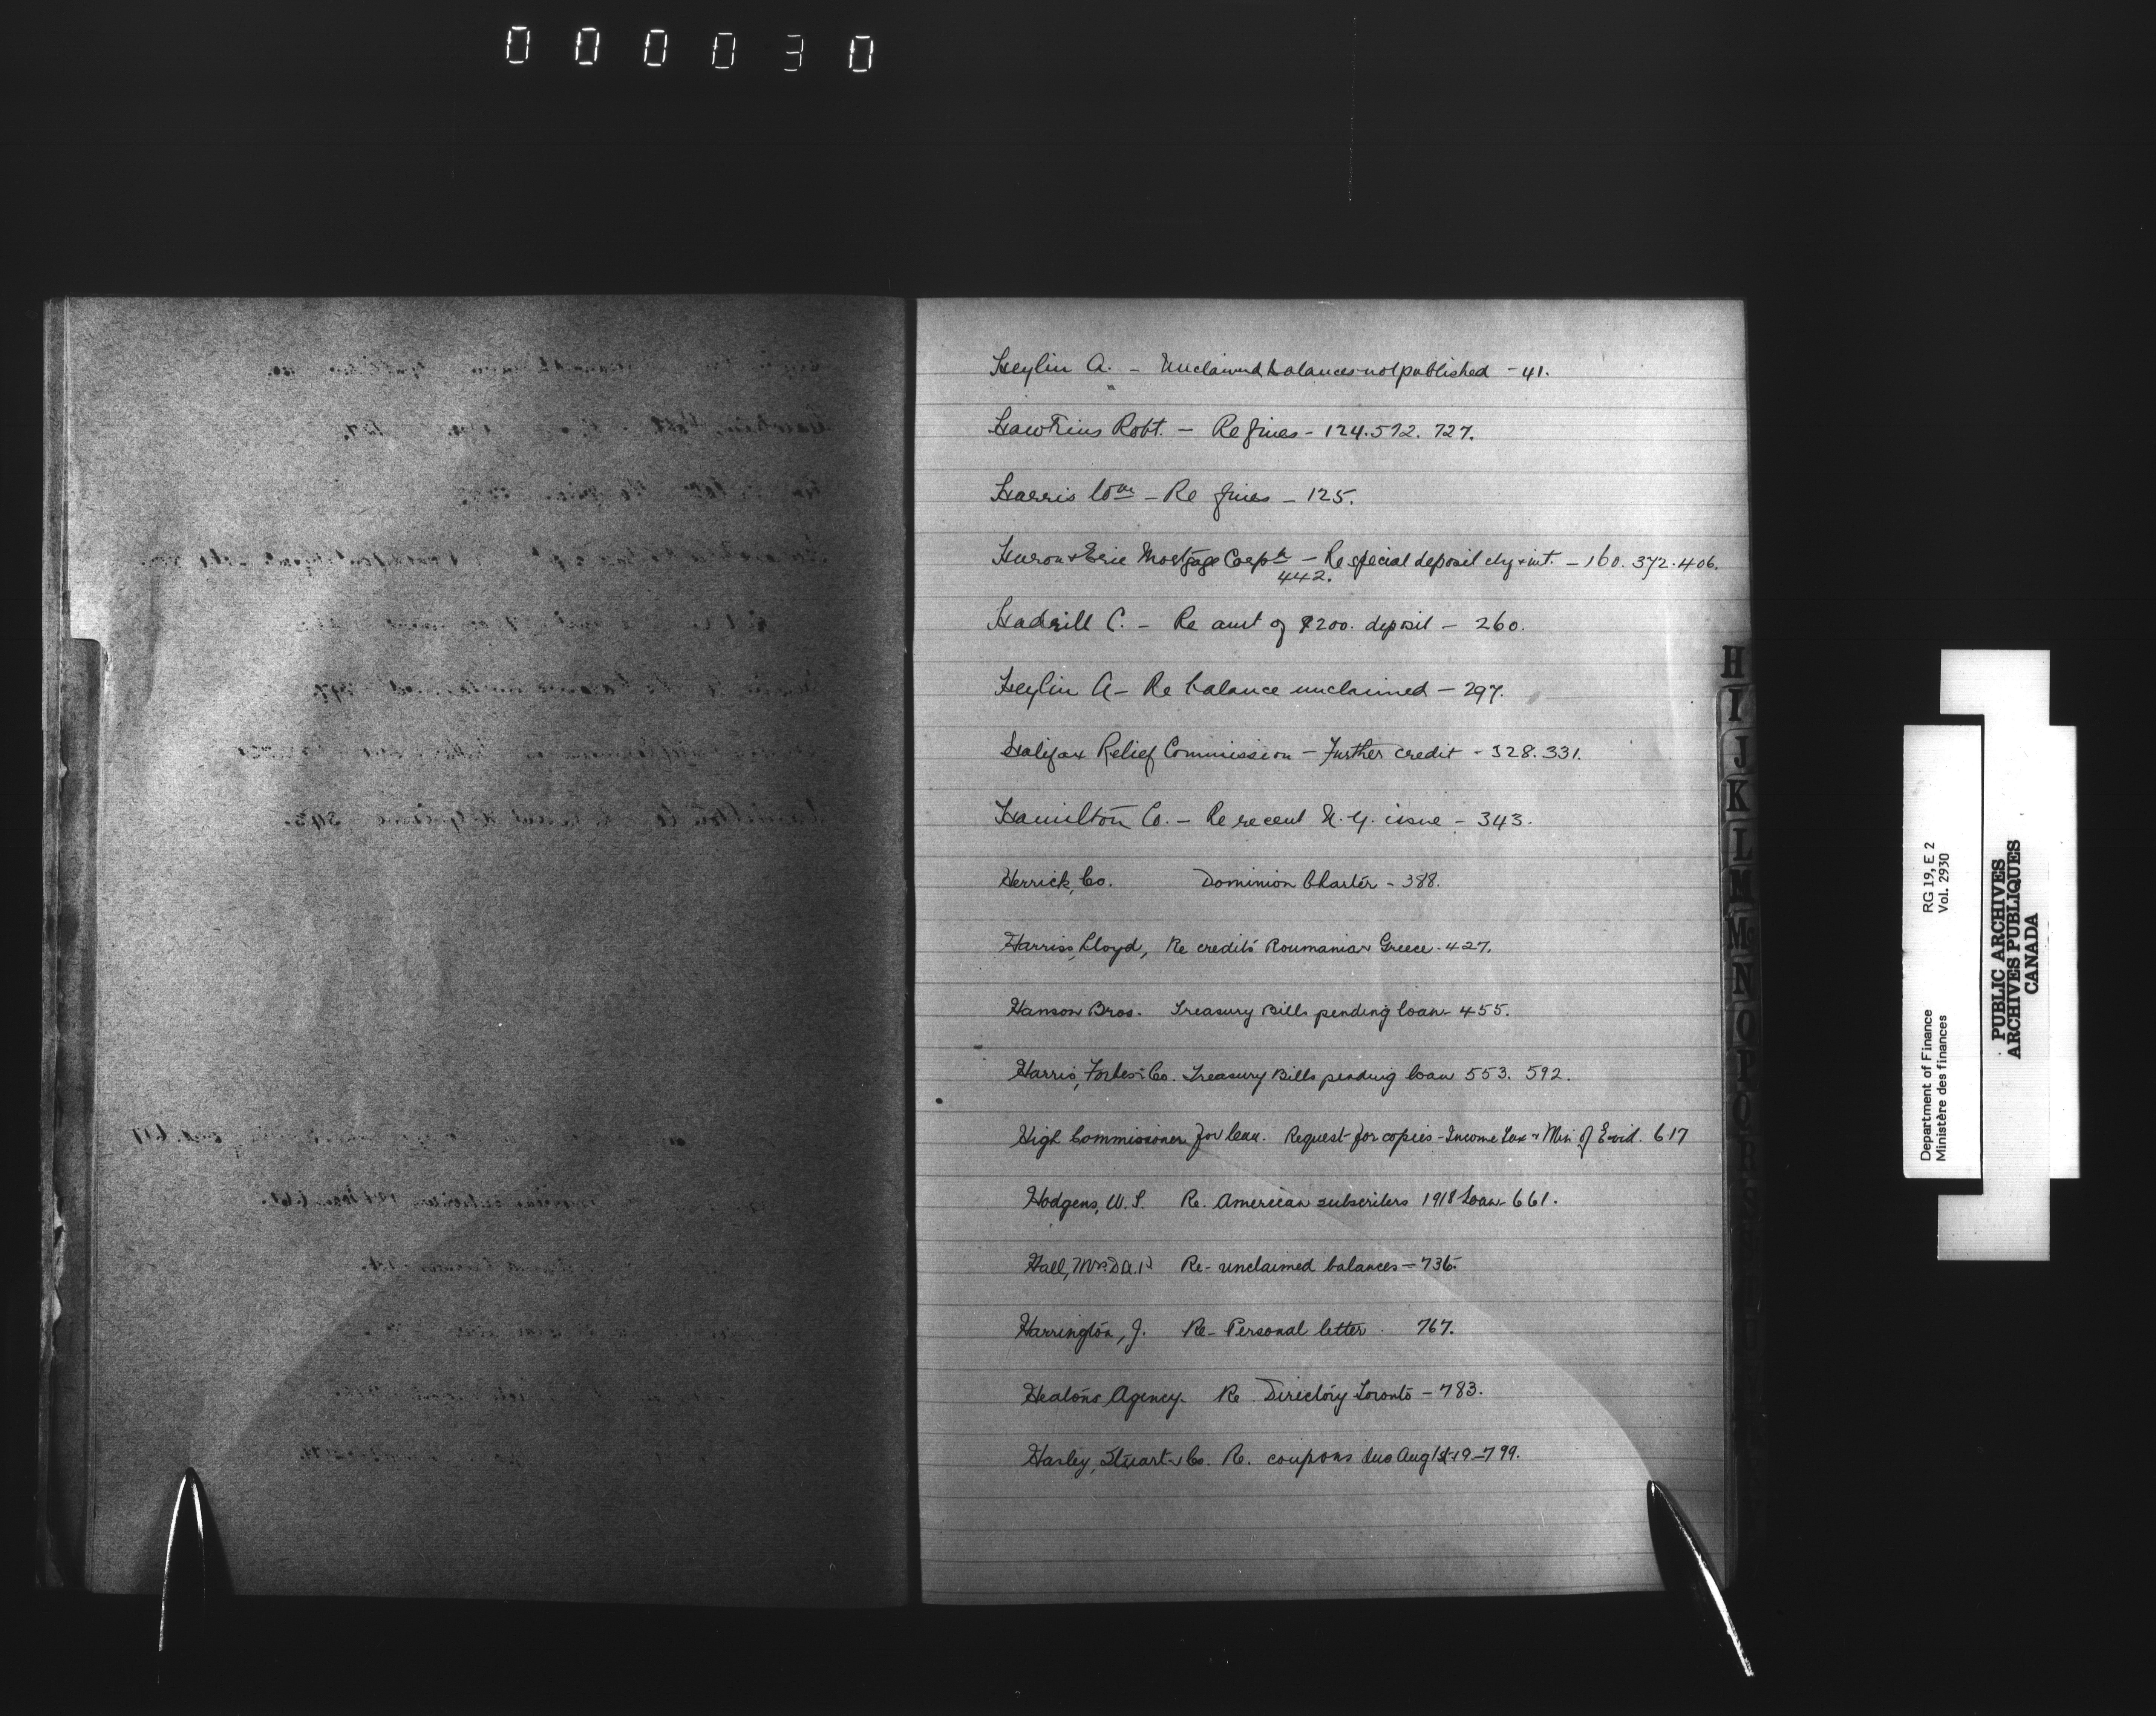 000030
Heylin A. - Unclaimed balances not published - 41.
Hawkins Robt. - Re fines - 124. 592. 727.
Harris Wm - Re fines - 125.
Huron & Erie Mortgage Corpn - Re special deposit chq & int. - 160. 372. 406.
442.
Hadrill C. - Re amt of $200. deposit - 260.
Heylin A - Re balance unclaimed - 297.
Halifax Relief Commission - Further credit - 328. 331.
Hamilton Co. - Re recent N.Y. issue - 343.
Herrick, Co. Dominion Charter - 388.
Harris, Lloyd, Re credits Roumania & Greece - 427.
Hanson Bros. Treasury Bills pending loan - 455.
Harris, Forbes & Co. Treasury Bills pending loan 553. 592.
High Commissioner for Can. Request for copies - Income Tax & Min of Evid. 617
Hodgens, W.S. Re. American subscribers 1918 Loan - 661.
Hall, Mrs. Re - unclaimed balances - 736.
Harrington, J. Re - Personal letter. 767.
Heatons Agency. Re Directory Toronto - 783.
Harley, Stuart & Co. Re. coupons due Aug 1st 19 - 799.
H
I
J
K
L
M
Mc
N
O
P
Q
R
Department of Finance RG 19, E 2
Ministère des finances Vol. 2930
PUBLIC ARCHIVES
ARCHIVES PUBLIQUES
CANADA